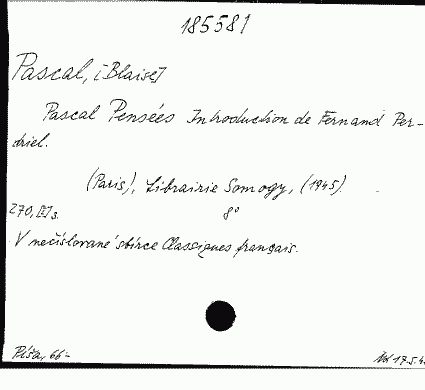 185581
Pascal, [Blaise]
Pascal Pensées Introduction de Fernand Per-
driel.
(Paris), Librairie Somogy, (1945).
270, [I] s. 8°
V nečíslované sbírce Classiques français.
Píša, 66.-
17.5.4